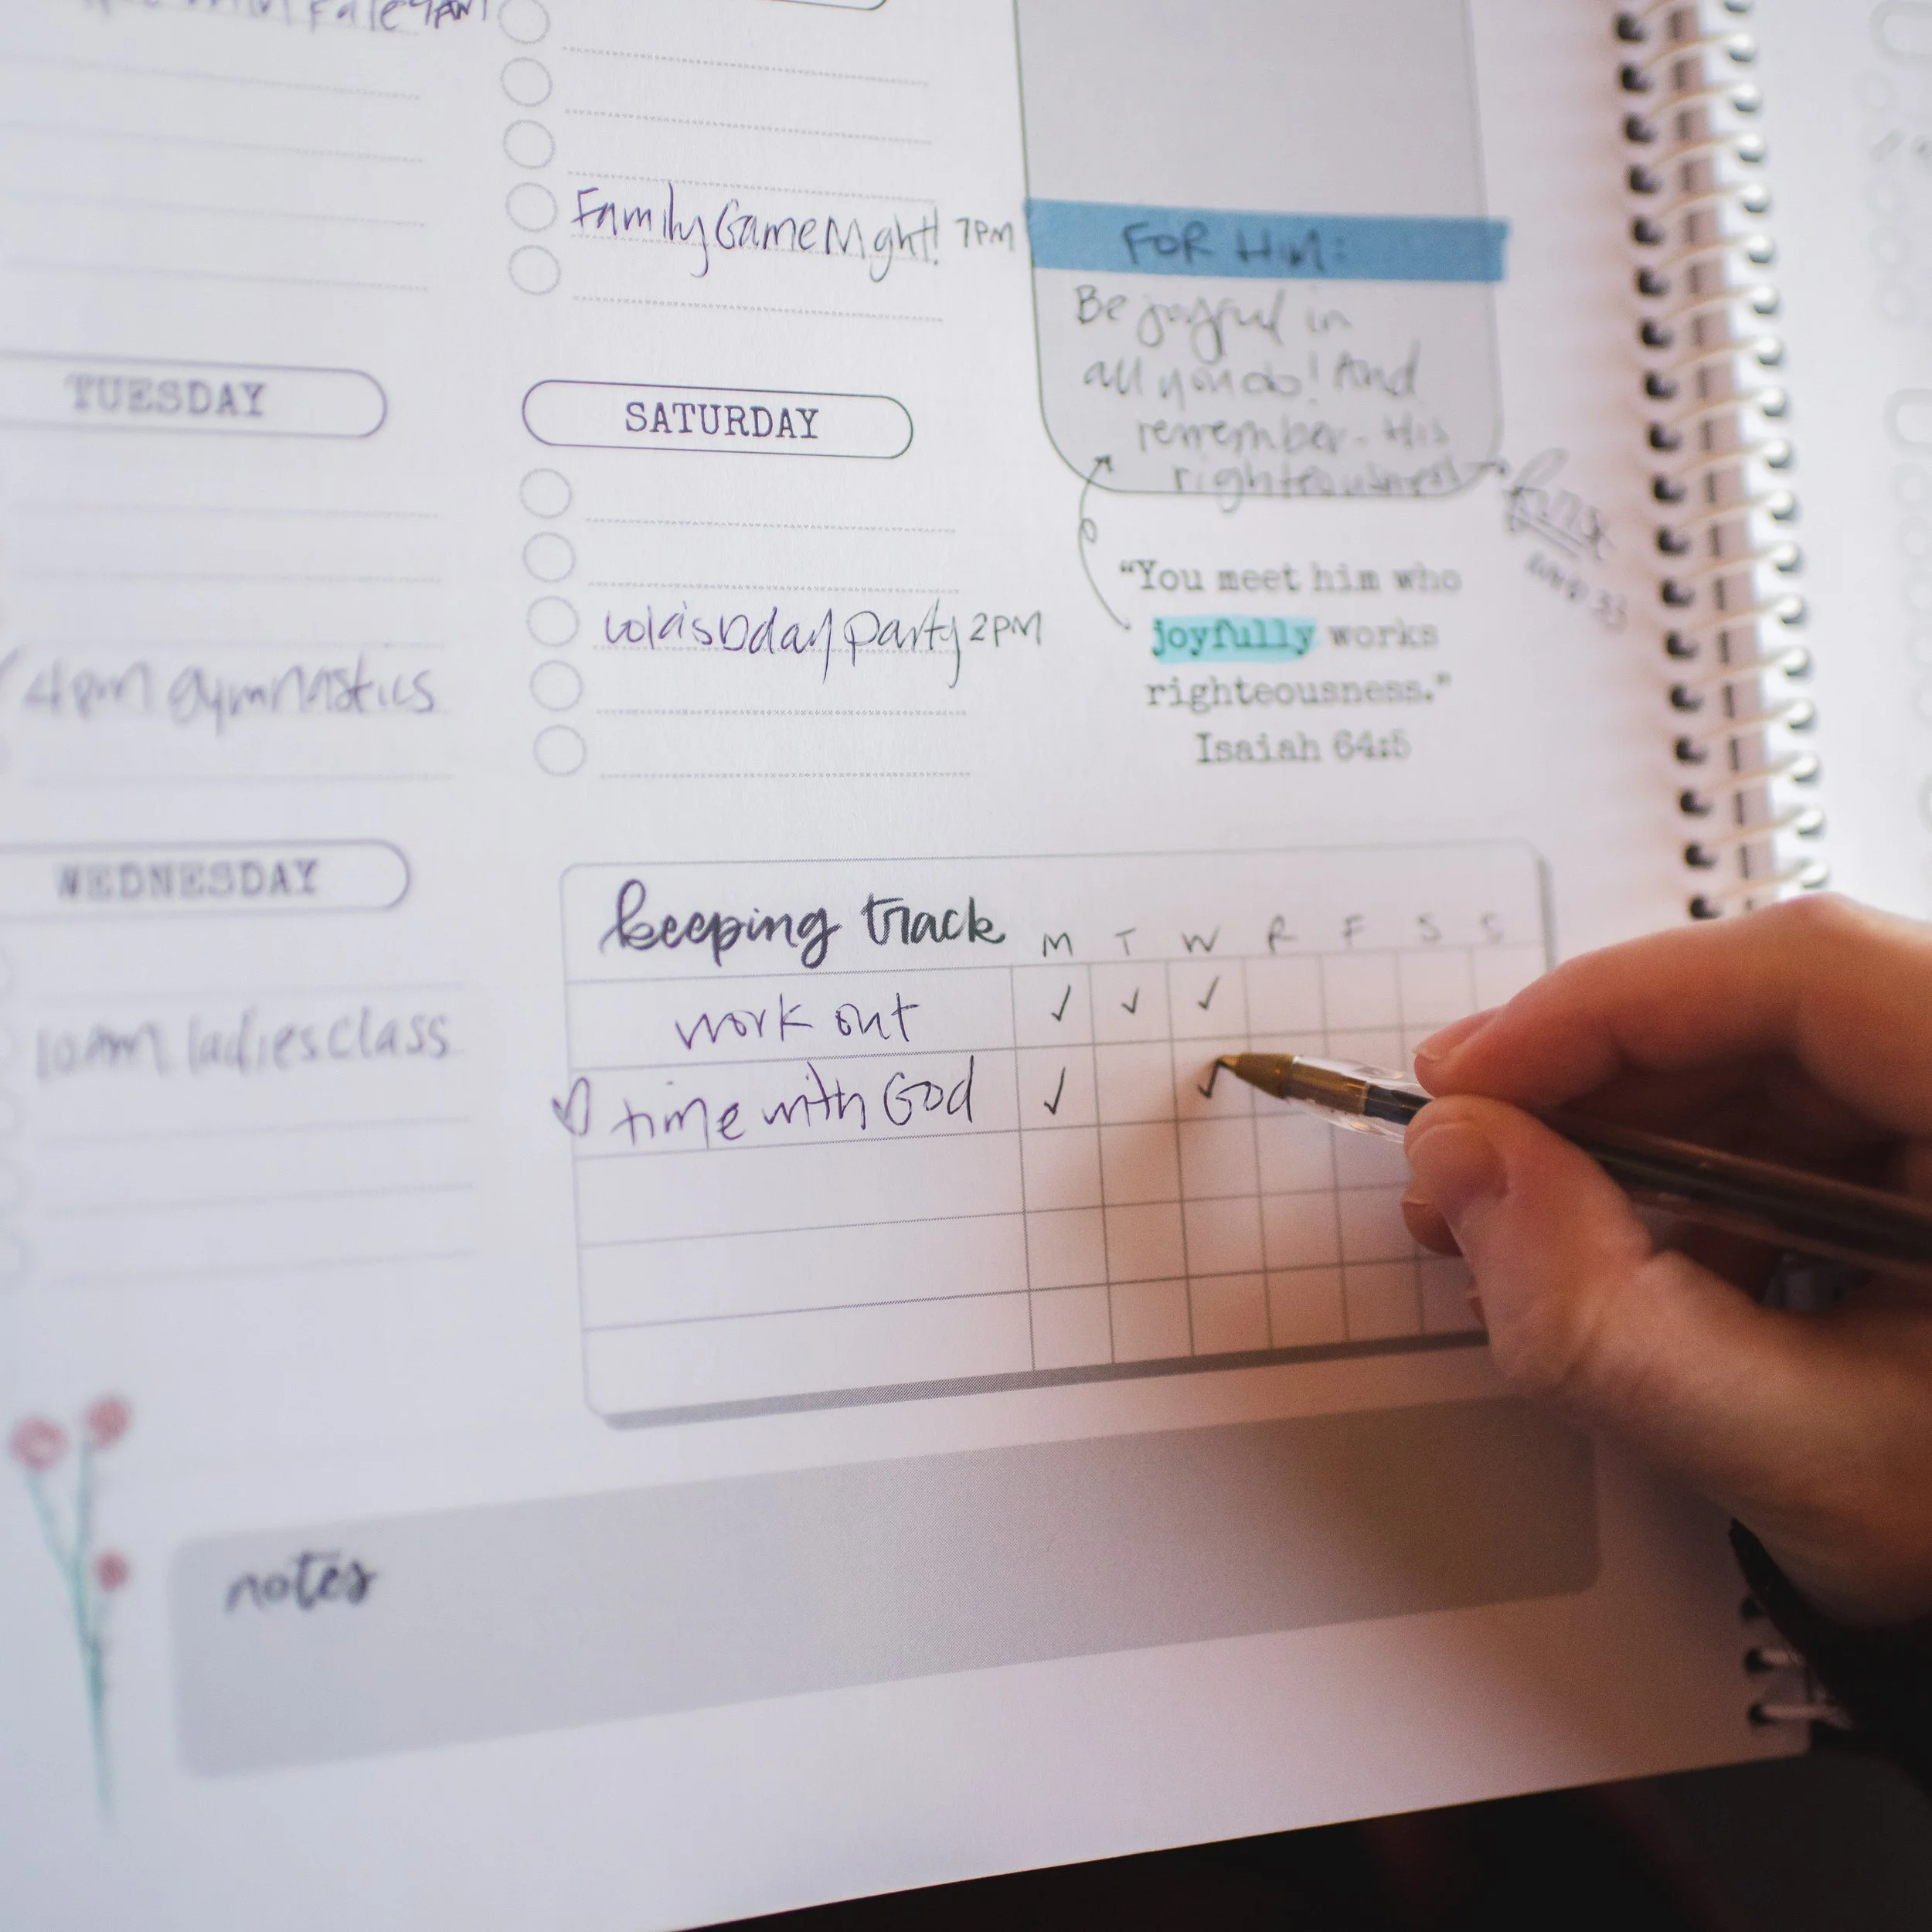 7PM
Family Game Night! 7PM
TUESDAY
4pm gymnastics
WEDNESDAY
10AM ladies class
SATURDAY
bday party 2PM
FOR HIM:
Be joyful in
all you do! And
remember - His
righteousness
"You meet him who
joyfully works
righteousness."
Isaiah 64:5
keeping track M T W R F S S
work out ✓ ✓ ✓
time with God ✓ ✓
notes